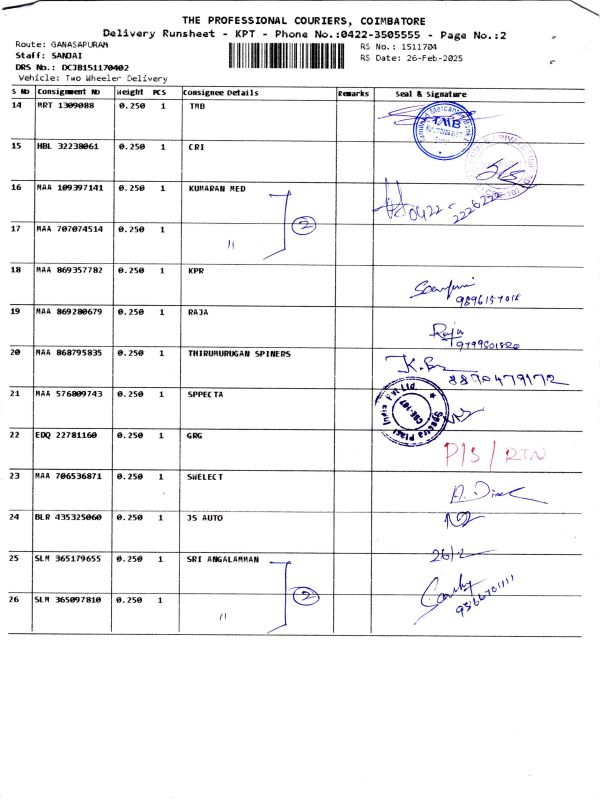 THE PROFESSIONAL COURIERS, COIMBATORE
Delivery Runsheet - KPT - Phone No.:0422-3505555 - Page No.:2
Route: GANASAPURAM
RS No.: 1511704
Staff: SANJAI
RS Date: 26-Feb-2025
DRS No.: DCJB151170402
Vehicle: Two Wheeler Delivery
S No Consignment No Weight PCS Consignee Details Remarks Seal & Signature
14 MRT 1309088 0.250 1 TMB
TMB
15 HBL 32238061 0.250 1 CRI
16 MAA 109397141 0.250 1 KUMARAN MED
0422-2226222
17 MAA 707074514 0.250 1 " 2
18 MAA 869357782 0.250 1 KPR
19 MAA 869280679 0.250 1 RAJA
Raja
20 MAA 868795835 0.250 1 THIRUMURUGAN SPINERS
8870479172
21 MAA 576809743 0.250 1 SPPECTA
Spectra Plast India Pvt Ltd.
CBE-107
22 EDQ 22781160 0.250 1 GRG
P/S / RTN
23 MAA 706536871 0.250 1 SWELECT
24 BLR 435325060 0.250 1 JS AUTO
26/2
25 SLM 365179655 0.250 1 SRI ANGALAMMAN
26 SLM 365097810 0.250 1 " 2